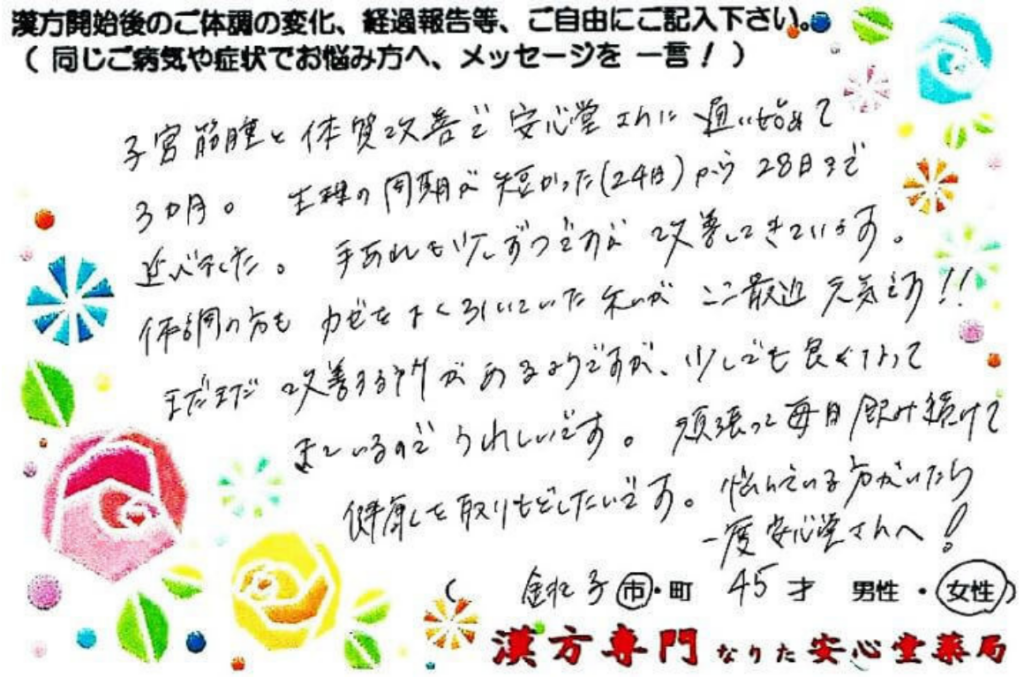 漢方開始後のご体調の変化、経過報告等、ご自由にご記入下さい。
( 同じご病気や症状でお悩み方へ、メッセージを 一言！ )
子宮筋腫と体質改善で安心堂さんに通い始めて
3カ月。 生理の周期が短かった(24日)から28日まで
延びました。 手あれも少しずつですが改善してきています。
体調の方も カゼをよく引いていた 私が ここ最近 元気です!!
まだまだ 改善する所があるようですが、少しでも良くなって
きているのでうれしいです。 頑張って毎日飲み続けて
健康を取りもどしたいです。 悩んでいる方がいたら
一度安心堂さんへ!
( 銚子市・町 45才 男性・女性)
漢方専門 なりた 安心堂薬局